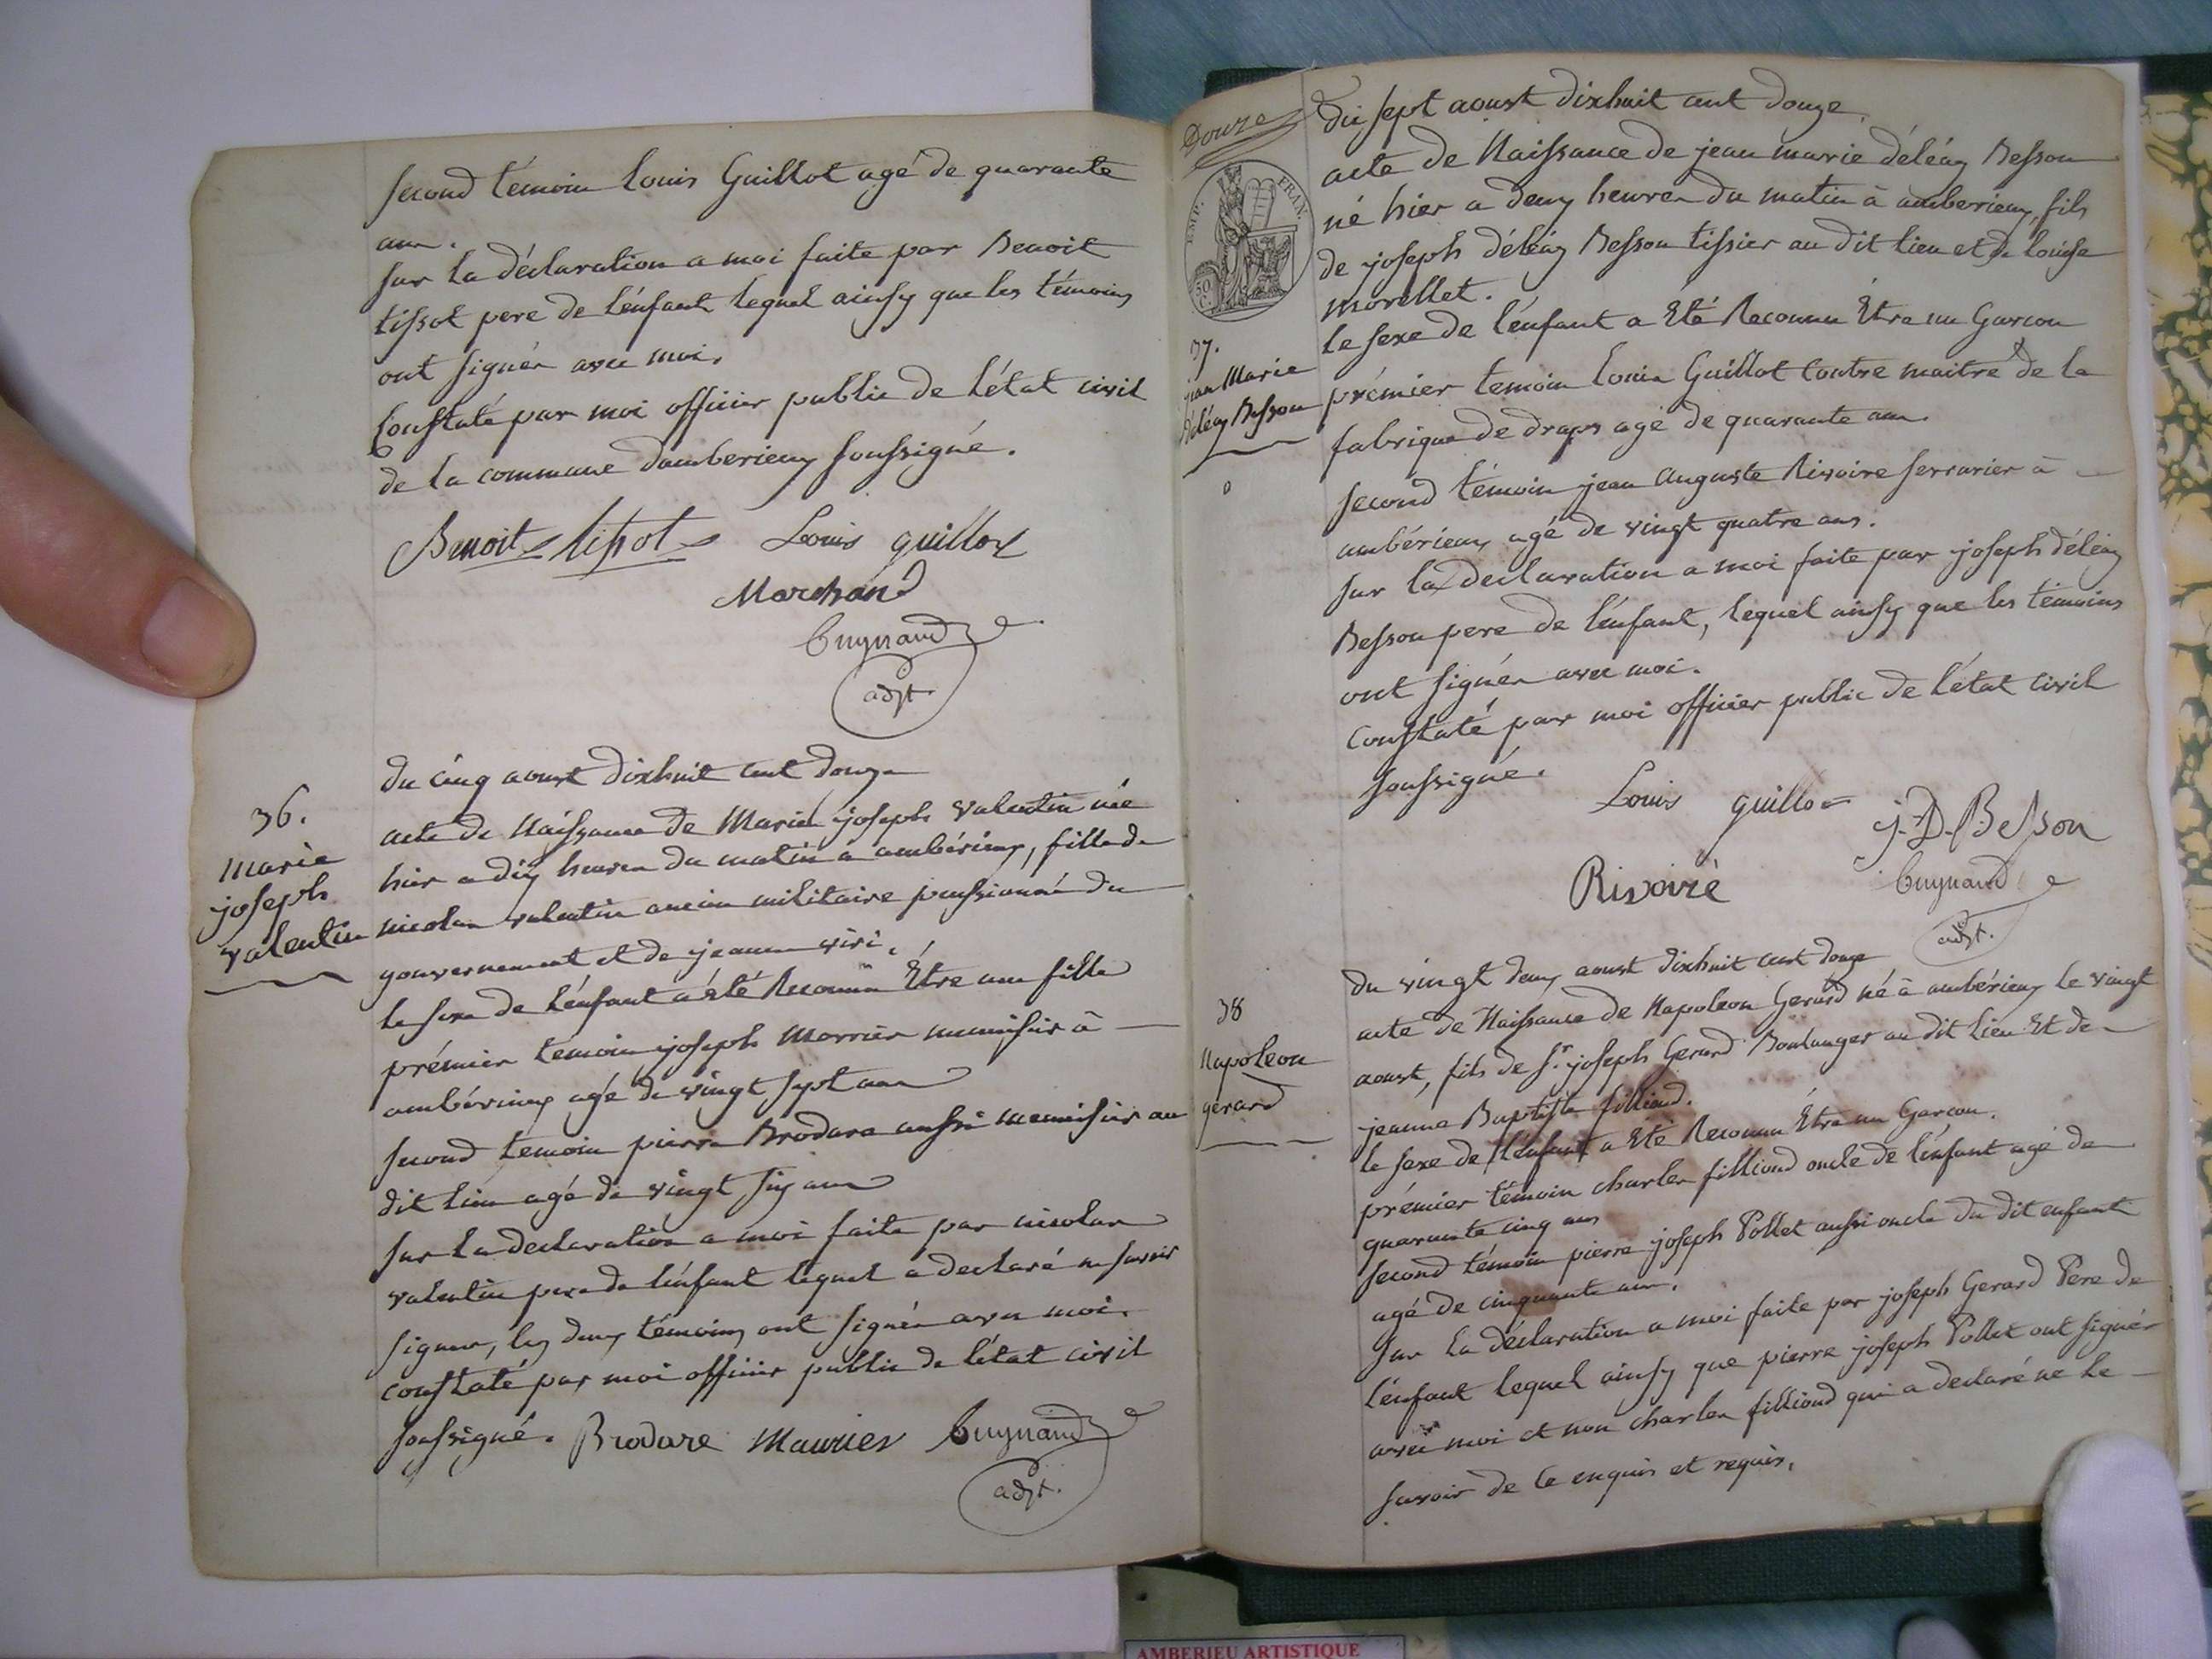 second témoin Louis Guillot agé de quarante
ans.
sur la déclaration a moi faite par Benoit
tissot pere de l'énfant lequel ainsy que les témoins
ont signés avec moi.
Constaté par moi officier public de l'état civil
de la commune damberieux soussigné.
Benoit tissot Louis guillot
Marchand
Cuynaud
adjt.
36.
Marie
joseph
valentin
du cinq aoust dixhuit cent douze
acte de Naissance de Marie joseph valentin née
hier a dix heures du matin a ambérieux, fille de
nicolas valentin ancien militaire pensionné du
gouvernement et de jeanne
le sexe de l'énfant a été Reconnu Être une fille
prémier témoin joseph Morrier menuisier à
ambérieux agé de vingt sept ans
second temoin pierre Brodare aussi menuisier au
dit lieu agé de vingt six ans
sur la declaration a moi faite par nicolas
valentin pere de l'énfant lequel a declaré ne savoir
signer, les deux témoins ont signés avec moi.
constaté par moi officier public de l'état civil
soussigné. Brodare Maurier Cuynaud
adjt.
Douze
EMP. FRAN.
50
C.
Du sept aoust dixhuit cent douze
acte de Naissance de jean marie déléaz Besson
né hier a deux heures du matin à amberieux, fils
de joseph déléaz Besson tissier au dit lieu et de louise
morellet.
37.
jean Marie
déléaz Besson
le sexe de l'énfant a Eté Reconnu Être un Garcon
prémier temoin Louis Guillot Contre maitre de la
fabrique de draps agé de quarante ans
second témoin jean auguste Rivoire serrurier à
ambérieux agé de vingt quatre ans.
sur la declaration a moi faite par joseph déléaz
Besson pere de l'énfant, lequel ainsy que les témoins
ont signés avec moi.
constaté par moi officier public de l'état civil
soussigné.
Louis guillot j. D. Besson
Rivoire Cuynaud
adjt.
38
Napoleon
gerard
du vingt deux aoust dixhuit cent douze
acte de Naissance de Napoleon Gerard né à ambérieux le vingt
aoust, fils de Sr. joseph Gerard Boulanger au dit lieu Et de
jeanne Baptiste filliond.
le sexe de l'énfant a Eté Reconnu Être un Garçon.
prémier témoin charles filliond oncle de l'énfant agé de
quarante cinq ans
second témoin pierre joseph Pollet aussi oncle du dit enfant
agé de cinquante ans.
sur la déclaration a moi faite par joseph Gerard Pere de
l'énfant lequel ainsy que pierre joseph Pollet ont signés
avec moi et non charles filliond qui a declaré ne le
savoir de ce enquis et requis.
AMBERIEU ARTISTIQUE